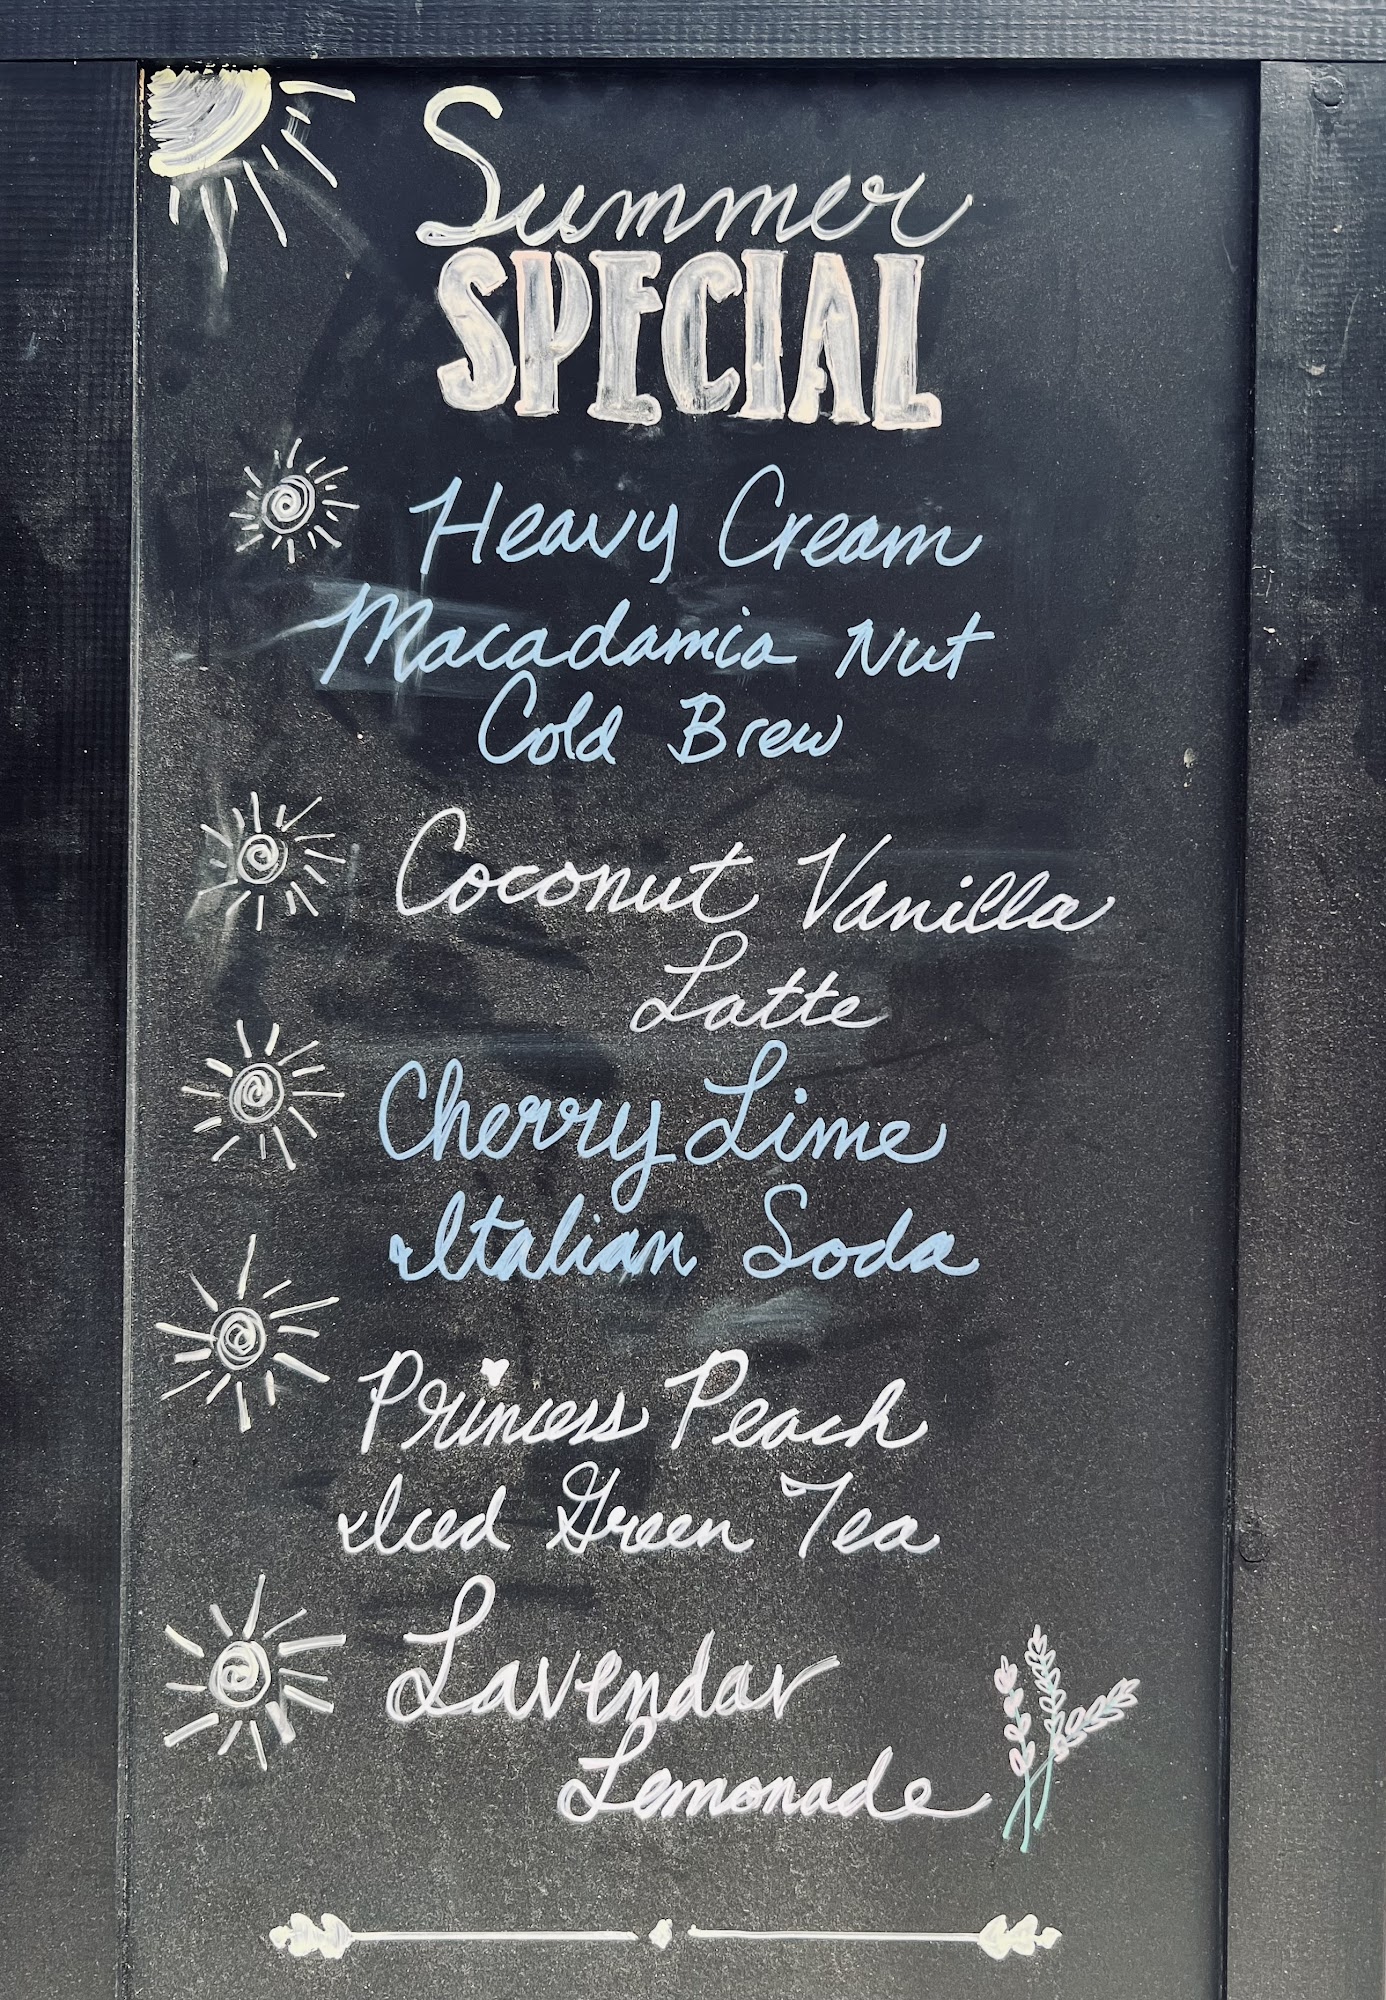 Summer
SPECIAL
Heavy Cream
Macadamia Nut
Cold Brew
Coconut Vanilla
Latte
Cherry Lime
Italian Soda
Princess Peach
Iced Green Tea
Lavendar
Lemonade